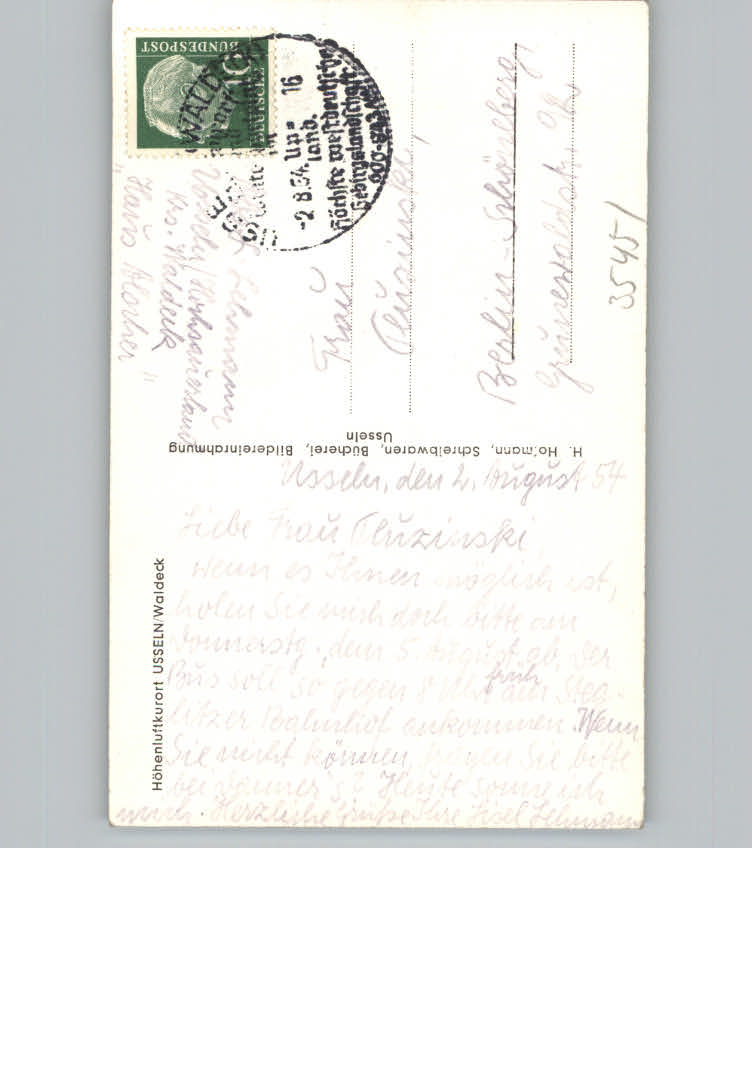 Höhenluftkurort USSELN/Waldeck
Usseln, den 2. August 54
Liebe Frau Pluzinski,
wenn es Ihnen möglich ist,
holen Sie mich doch bitte am
Donnerstg., dem 5. August ab, der
Bus soll so gegen 8 Uhr früh am Steg-
litzer Bahnhof ankommen. Wenn
Sie nicht können, fragen Sie bitte
bei 's? Heute sonne ich
mich. Herzliche Grüße Ihre Lehmann
H. Hofmann, Schreibwaren, Bücherei, Bildereinrahmung
Usseln
Lehmann
Usseln/Hochsauerland
Krs. Waldeck
"Haus "
DEUTSCHE
BUNDESPOST
10
USSE
WALDECK
-2.8.54. 16
Up=
land.
Höchste westdeutsche
Gebirgslandschaft
600-843 M
Frau
Pluzinski,
Berlin-Schöneberg,
Grunewaldstr.
35451